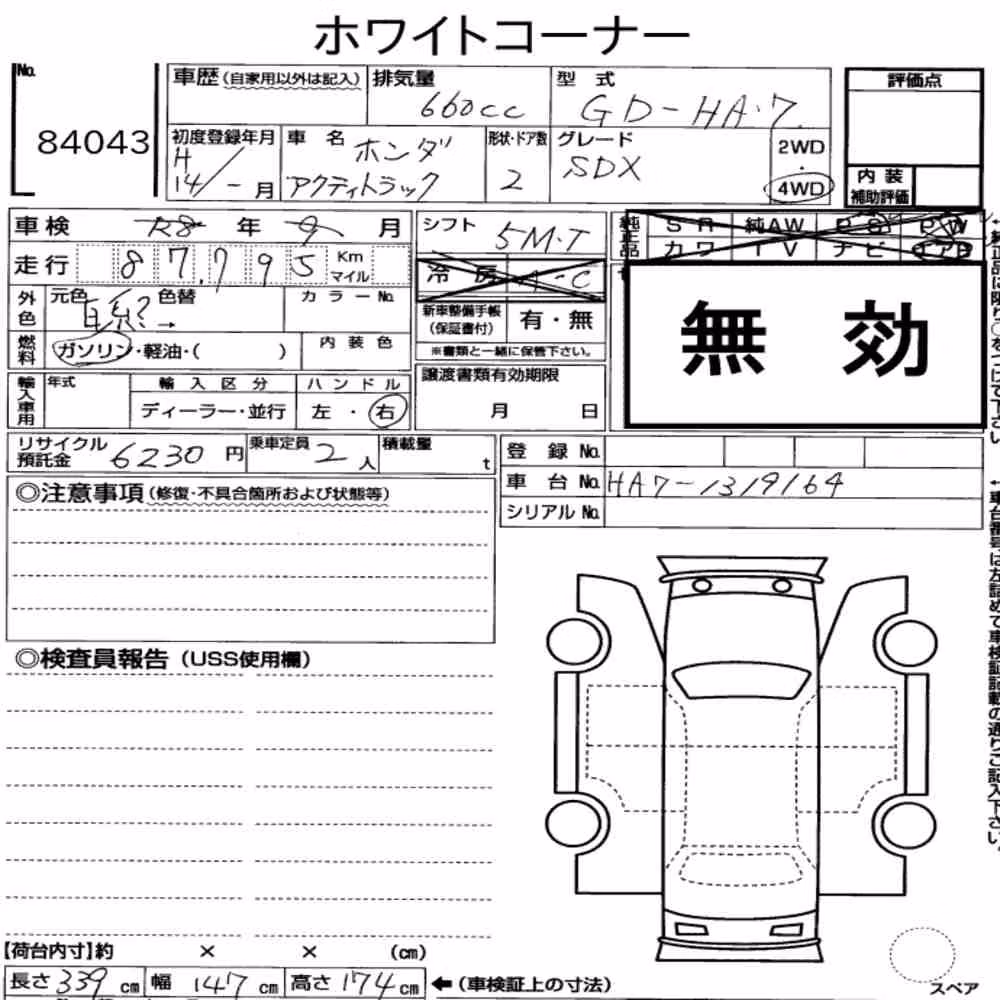 ホワイトコーナー
No.
84043
車歴(自家用以外は記入)
排気量
660cc
型式
GD-HA7
評価点
初度登録年月
H
14/-月
車名
ホンダ
アクティトラック
形状・ドア数
2
グレード
SDX
2WD
・
4WD
内装
補助評価
車検 R8年9月
シフト
5M・T
純正品
SR 純AW PS PW
カワ TV ナビ エアB
走行 87,795 Km
マイル
冷房 A・C
外色
元色
色替
→
カラーNo.
新車整備手帳
(保証書付)
有・無
※書類と一緒に保管下さい。
無効
燃料
ガソリン・軽油・( )
内装色
輸入車用
年式
輸入区分
ディーラー・並行
ハンドル
左・右
譲渡書類有効期限
月 日
リサイクル
預託金
6230円
乗車定員
2人
積載量
t
登録No.
車台No. HA7-1319164
シリアルNo.
◎注意事項(修復・不具合箇所および状態等)
◎検査員報告(USS使用欄)
【荷台内寸】約 × × (cm)
長さ339cm 幅147cm 高さ174cm ←(車検証上の寸法)
スペア
←純正品に限り○をつけて下さい
←車台番号は左詰めで車検証記載の通りご記入下さい。